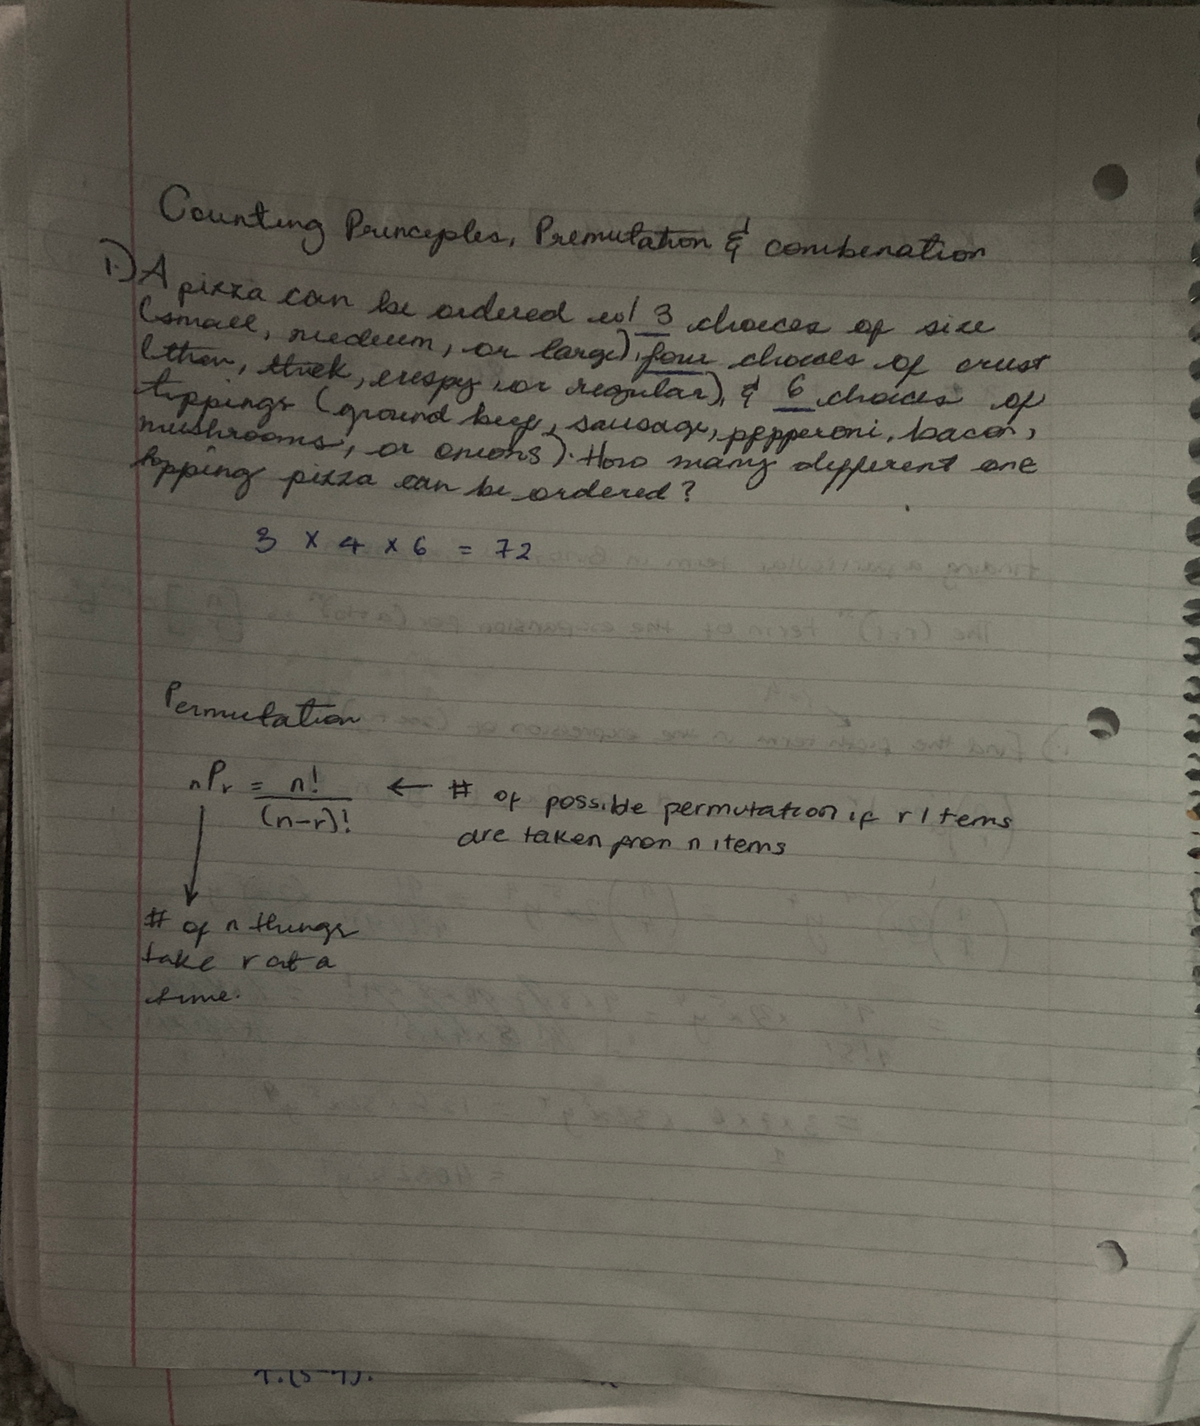 Counting Principles, Premutation & combination
1.) A pizza can be ordered w/ 3 choices of size
(small, medium, or large), four choices of crust
(thin, thick, crispy, or regular), & 6 choices of
toppings (ground beef, sausage, pepperoni, bacon,
mushrooms, or onions). How many different one
topping pizza can be ordered?
3 x 4 x 6 = 72
Permutation
nPr = n! / (n-r)! ← # of possible permutation if r items
are taken from n items
# of n things
take r at a
time.